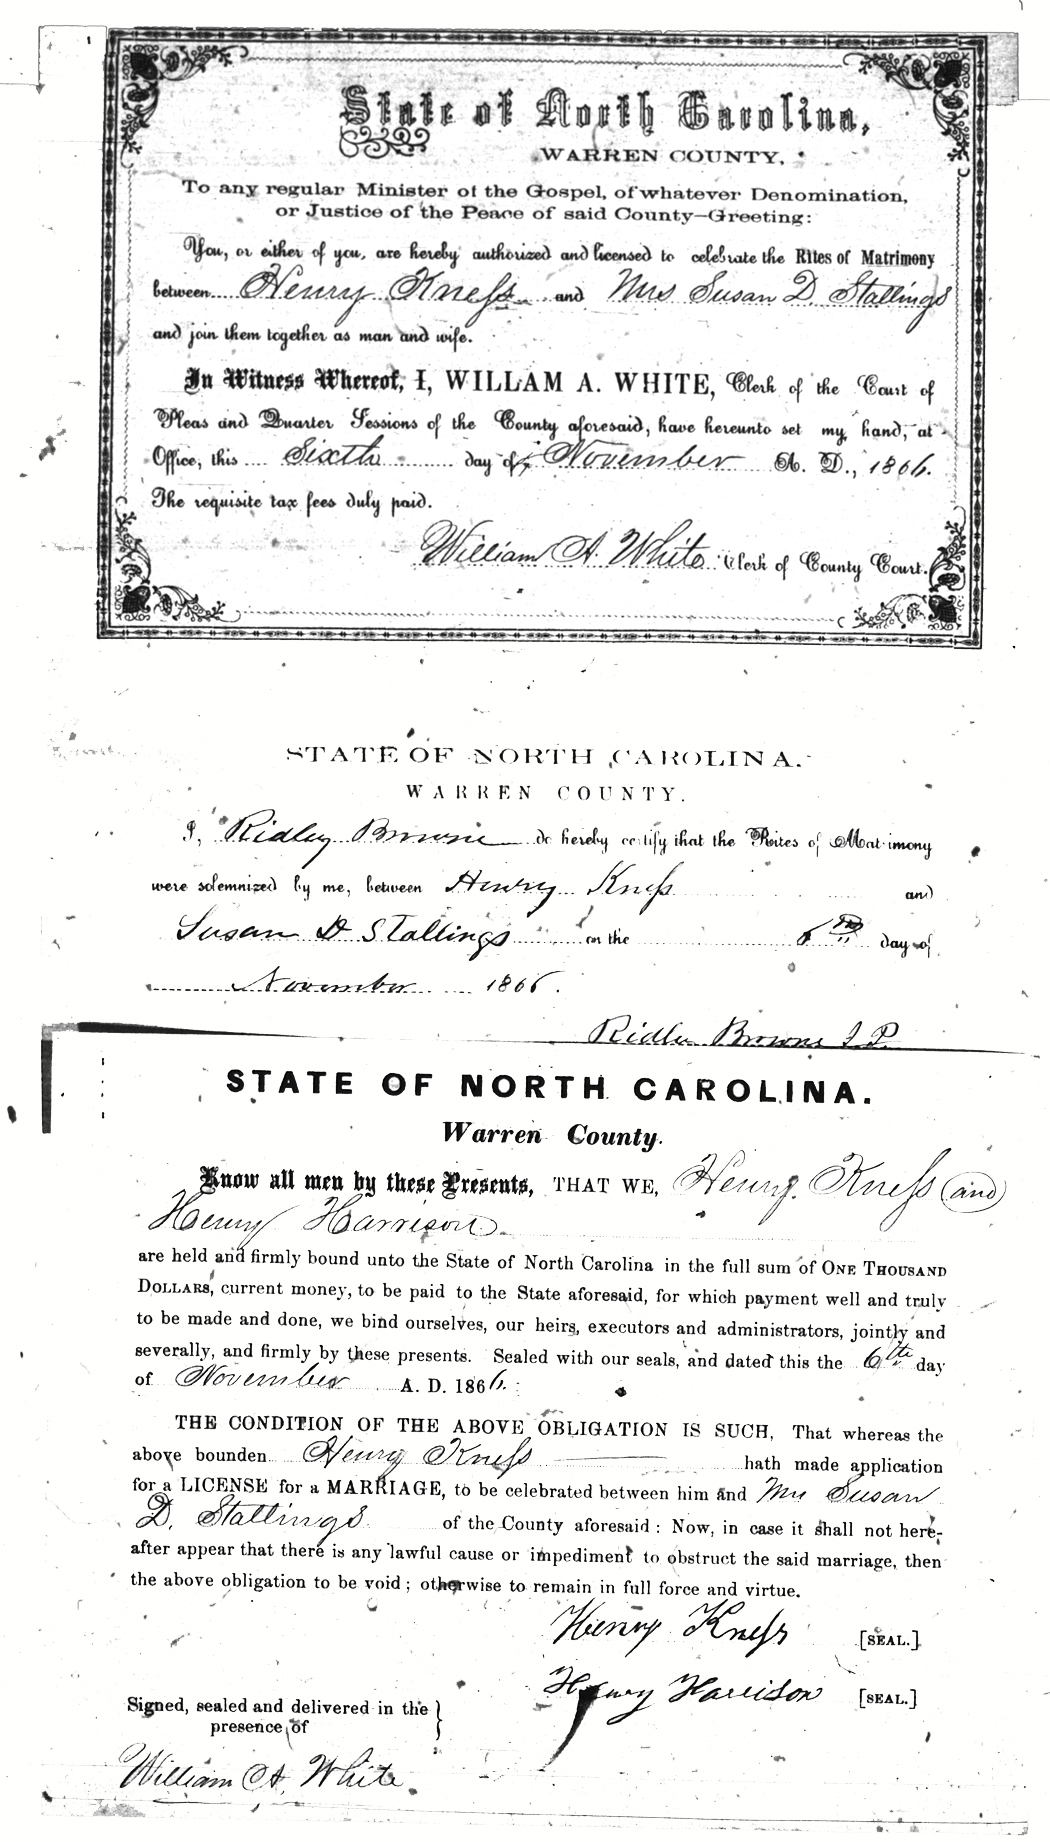 State of North Carolina,
WARREN COUNTY,
To any regular Minister of the Gospel, of whatever Denomination,
or Justice of the Peace of said County—Greeting:
You, or either of you, are hereby authorized and licensed to celebrate the Rites of Matrimony
between Henry Kness and Mrs Susan D Stallings
and join them together as man and wife.
In Witness Whereof, I, WILLAM A. WHITE, Clerk of the Court of
Pleas and Quarter Sessions of the County aforesaid, have hereunto set my hand, at
Office, this Sixth day of November A. D., 1866.
The requisite tax fees duly paid.
William A. White Clerk of County Court.
STATE OF NORTH CAROLINA.
WARREN COUNTY.
I, Ridley Browne do hereby certify that the Rites of Matrimony
were solemnized by me, between Henry Kness and
Susan D Stallings on the 6th day of
November 1866.
Ridley Browne J P.
STATE OF NORTH CAROLINA.
Warren County.
Know all men by these Presents, THAT WE, Henry Kness and
Henry Harrison
are held and firmly bound unto the State of North Carolina in the full sum of ONE THOUSAND
DOLLARS, current money, to be paid to the State aforesaid, for which payment well and truly
to be made and done, we bind ourselves, our heirs, executors and administrators, jointly and
severally, and firmly by these presents. Sealed with our seals, and dated this the 6th day
of November A. D. 1866.
THE CONDITION OF THE ABOVE OBLIGATION IS SUCH, That whereas the
above bounden Henry Kness hath made application
for a LICENSE for a MARRIAGE, to be celebrated between him and Mrs Susan
D. Stallings of the County aforesaid: Now, in case it shall not here-
after appear that there is any lawful cause or impediment to obstruct the said marriage, then
the above obligation to be void; otherwise to remain in full force and virtue.
Henry Kness [SEAL.]
Henry Harrison [SEAL.]
Signed, sealed and delivered in the
presence of
William A. White.